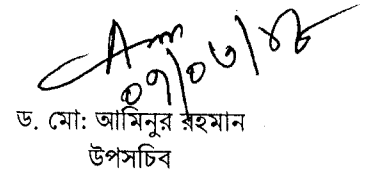 ০৭/০৩/২৮
ড. মো: আমিনুর রহমান
উপসচিব